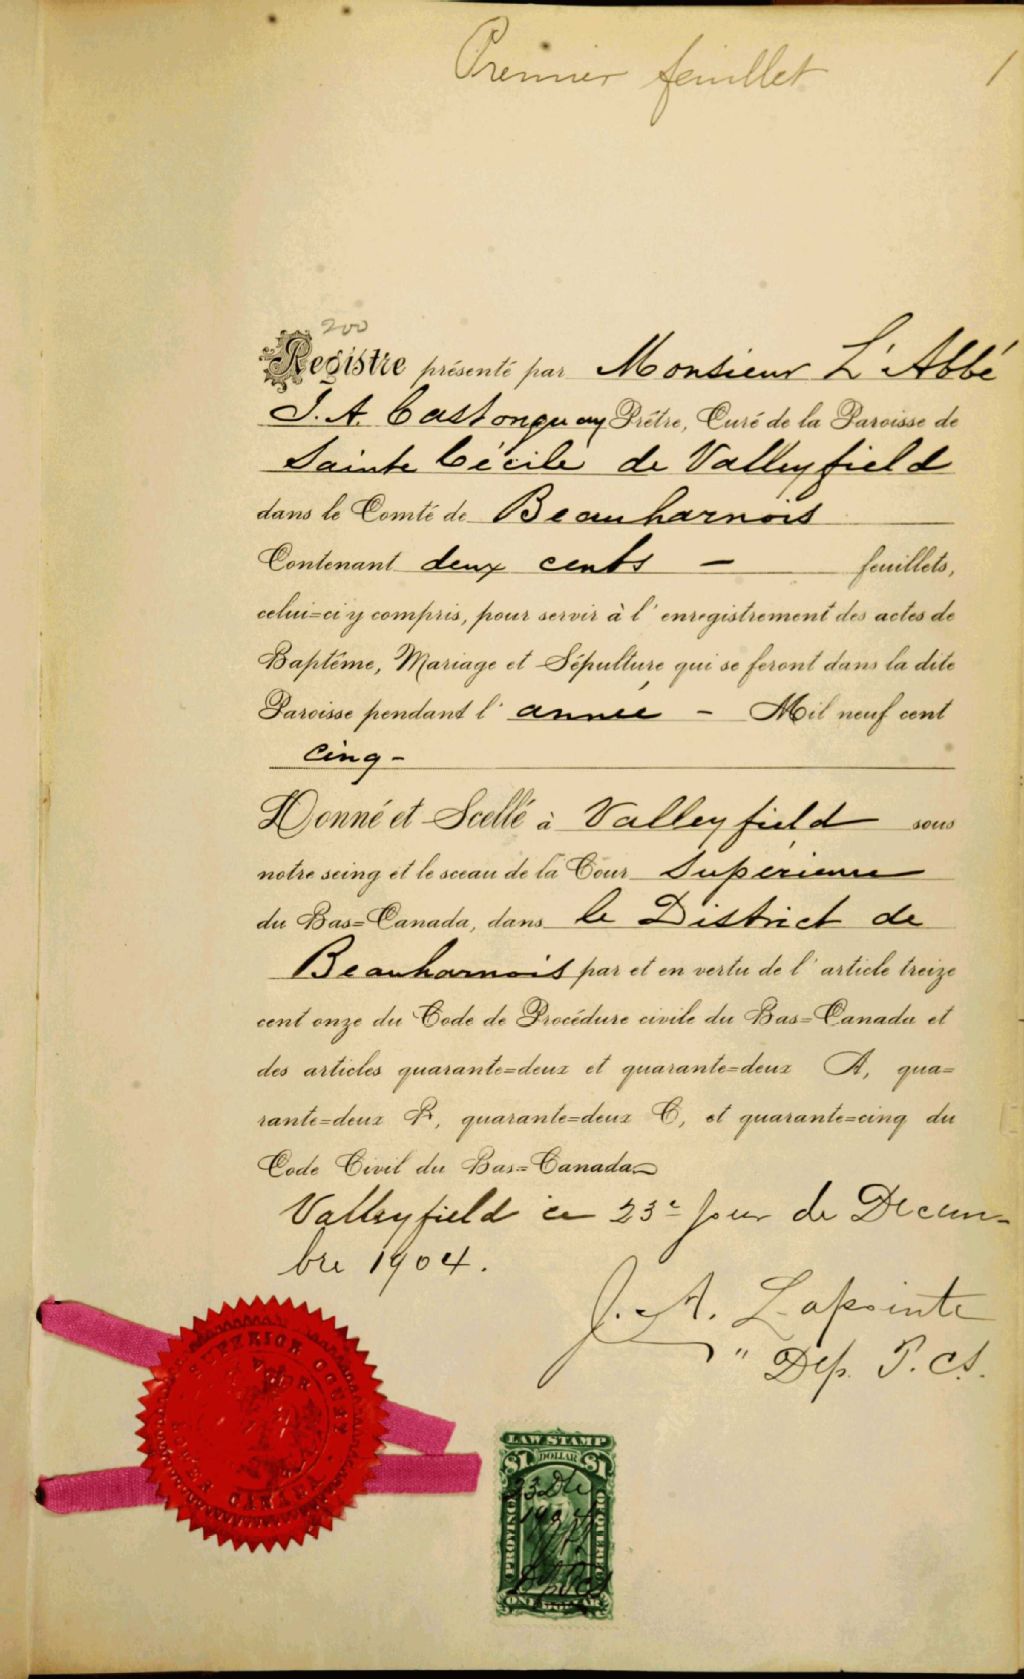 Premier feuillet 1
200
Registre présenté par Monsieur L'Abbé
J. A. Castonguay Prêtre, Curé de la Paroisse de
Sainte Cécile de Valleyfield
dans le Comté de Beauharnois
Contenant deux cents — feuillets,
celui=ci y compris, pour servir à l'enregistrement des actes de
Baptême, Mariage et Sépulture qui se feront dans la dite
Paroisse pendant l'année – Mil neuf cent
cinq -
Donné et Scellé à Valleyfield sous
notre seing et le sceau de la Cour Supérieure
du Bas=Canada, dans le District de
Beauharnois par et en vertu de l'article treize
cent onze du Code de Procédure civile du Bas=Canada et
des articles quarante=deux et quarante=deux A, qua=
rante=deux B, quarante=deux C, et quarante=cinq du
Code Civil du Bas=Canada
Valleyfield ce 23e jour de Decem-
bre 1904.
J. A. Lapointe
" Dep. P. C.S.
SUPERIOR COURT
LOWER CANADA
LAW STAMP
$1 DOLLAR $1
23 Dec
1904
PROVINCE
ONE DOLLAR